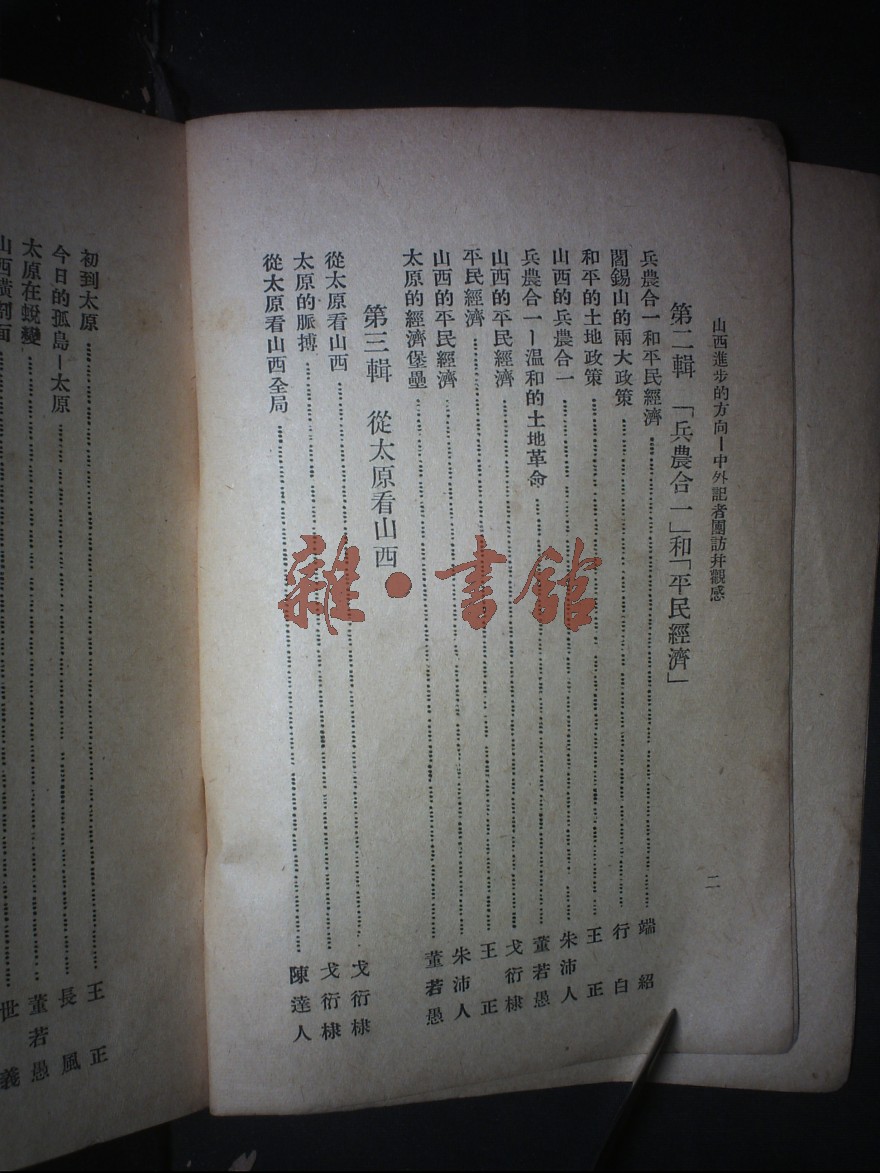 山西進步的方向—中外記者團訪幷觀感
二
第二輯 「兵農合一」和「平民經濟」
兵農合一和平民經濟 端紹
閻錫山的兩大政策 行白
和平的土地政策 王正
山西的兵農合一 朱沛人
兵農合一—温和的土地革命 董若愚
山西的平民經濟 戈衍棣
平民經濟 王正
山西的平民經濟 朱沛人
太原的經濟堡壘 董若愚
第三輯 從太原看山西
從太原看山西 戈衍棣
太原的脈搏 戈衍棣
從太原看山西全局 陳達人
初到太原 王正
今日的孤島—太原 長風
太原在蛻變 董若愚
山西橫剖面 世義
雜·書館